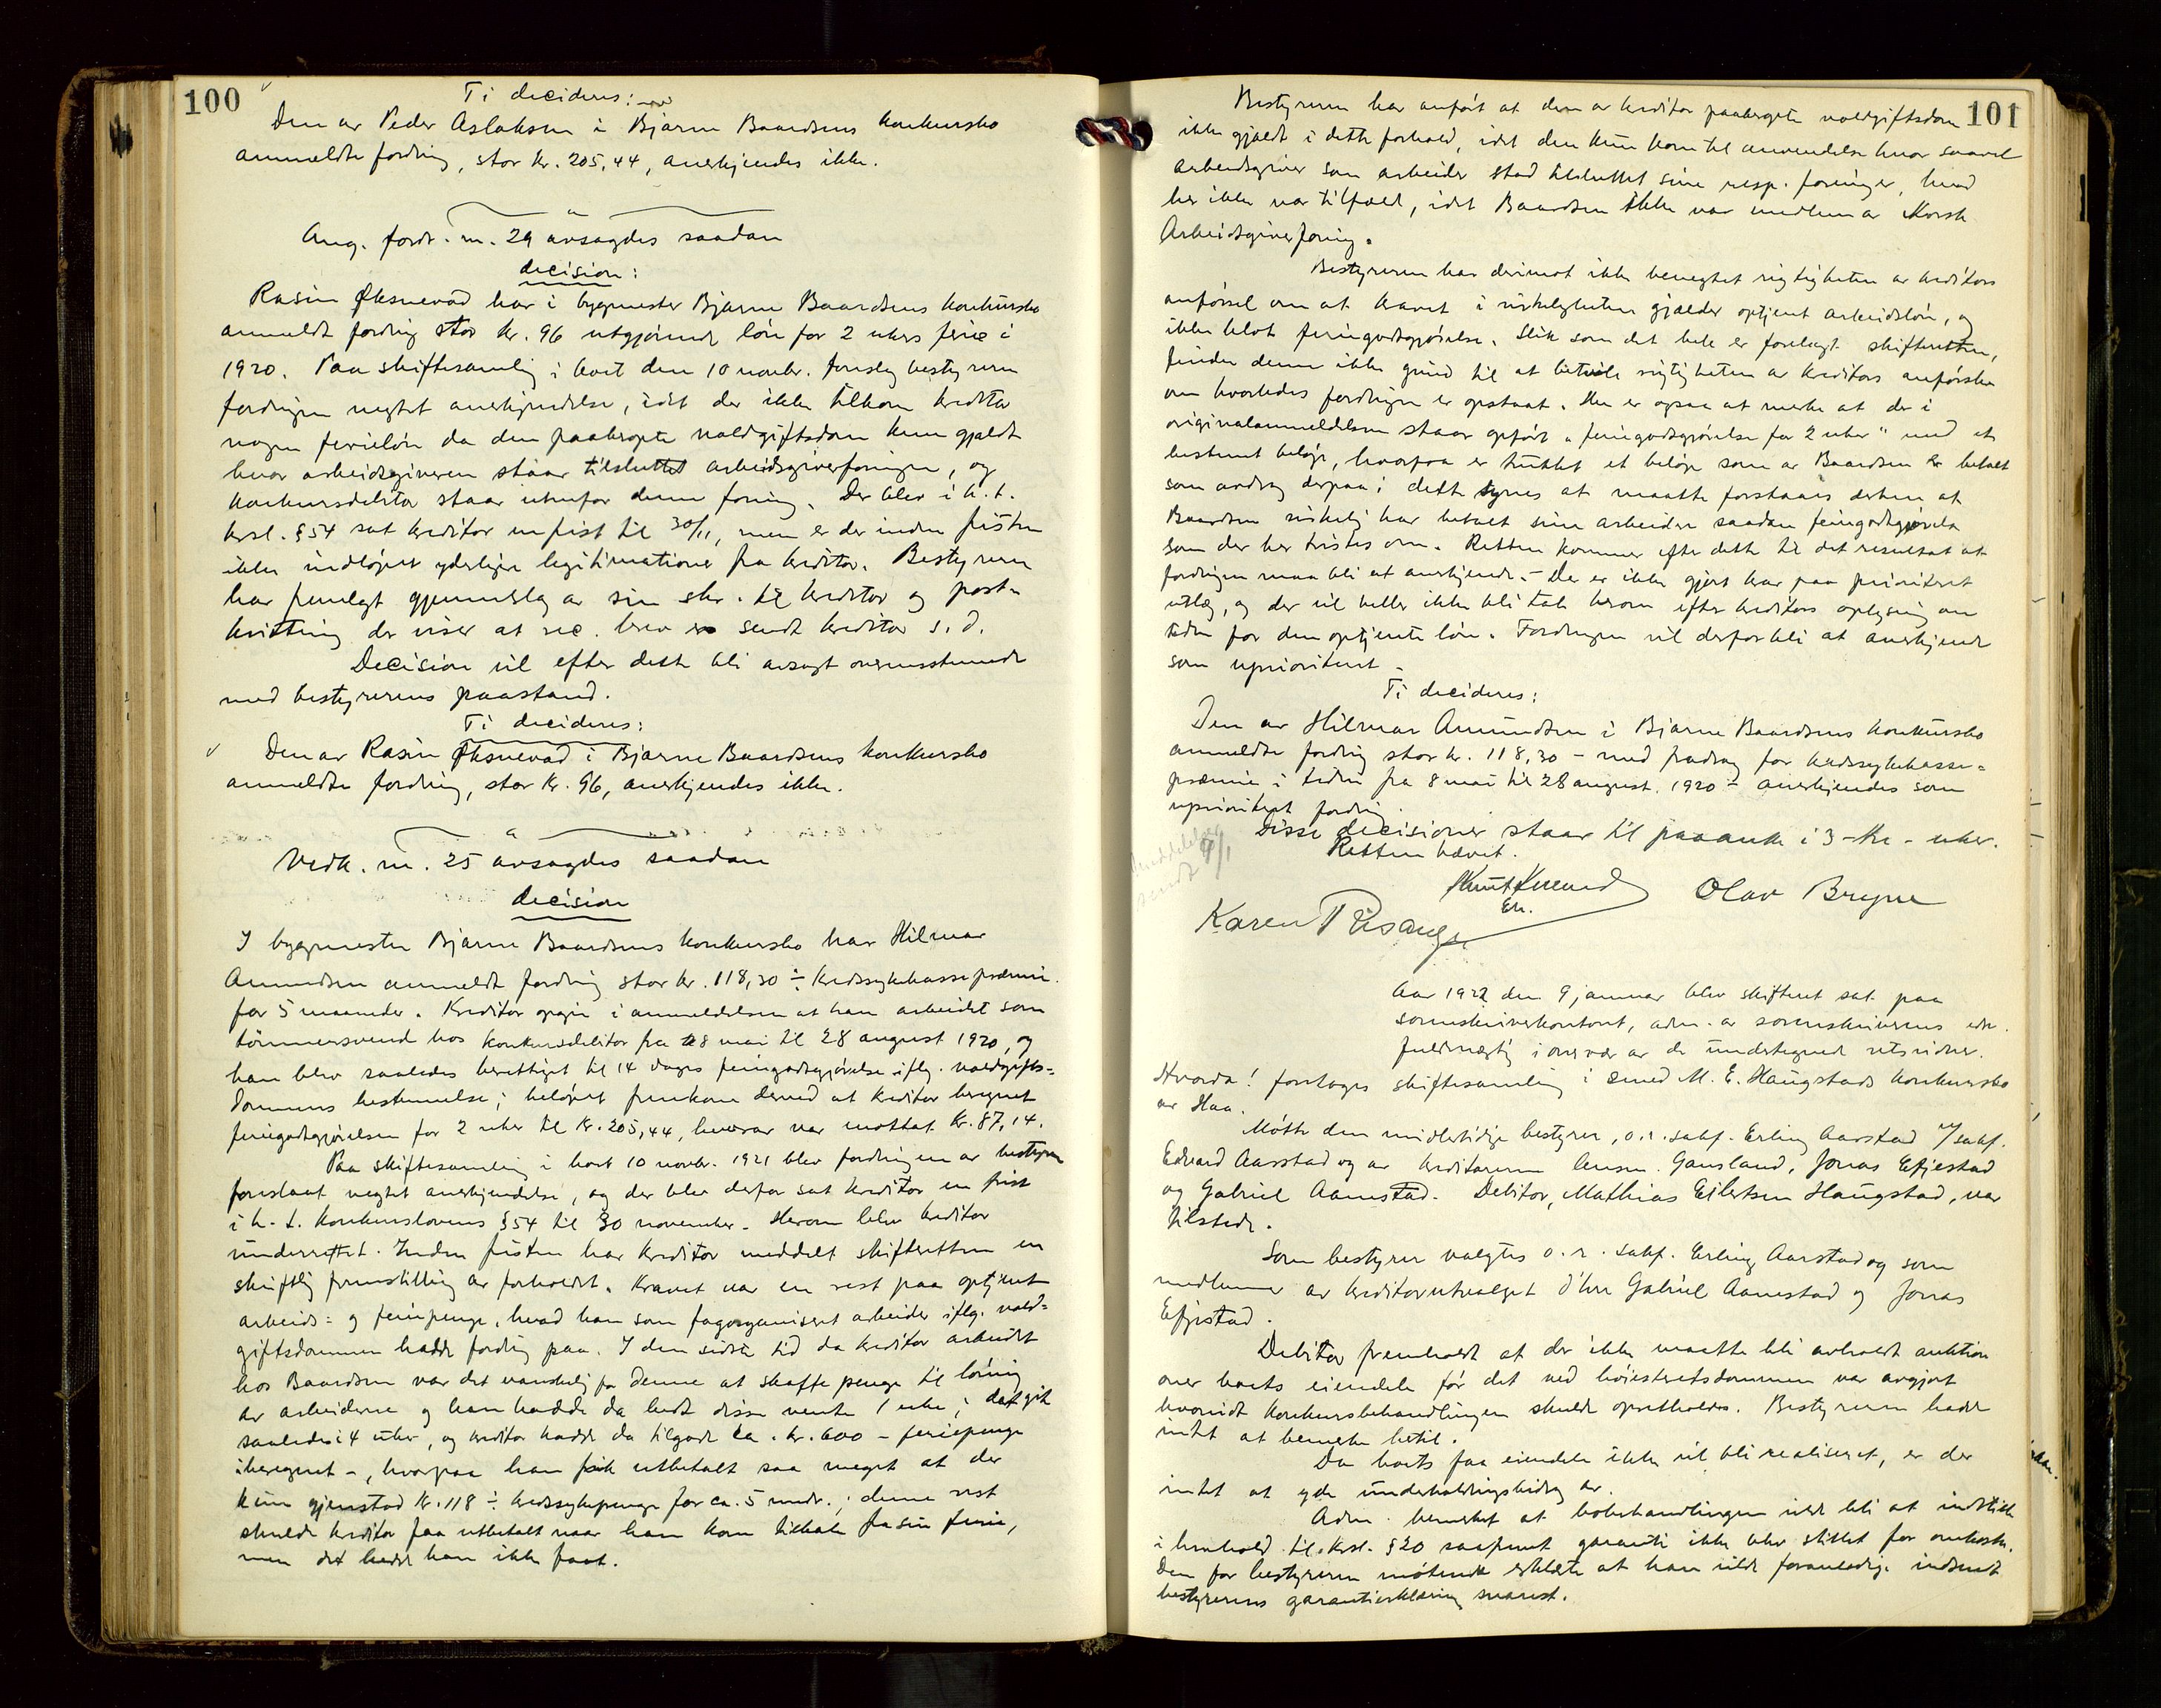 100
Ti decideres:
Den av Peder Aslaksen i Bjarne Baardsens konkursbo
anmeldte fordring, stor kr. 205,44, anerkjendes ikke.
Ang. fordr. nr. 29 avsagdes saadan
decision:
Rasin Øksnevad har i bygmester Bjarne Baardsens konkursbo
anmeldt fordring stor kr. 96 utgjørende løn for 2 ukers ferie i
1920. Paa skiftesamling i boet den 10 novbr. foreslog bestyreren
fordringen negtet anerkjendelse, idet der ikke tilkom kreditor
nogen ferieløn da den paaberopte voldgiftsdom kun gjaldt
hvor arbeidsgiveren staar tilsluttet arbeidsgiverforeningen, og
konkursdebitor staar utenfor denne forening. Der blev i h.t.
krsl. §54 sat kreditor en frist til 30/11, men er der inden fristen
ikke indløpet yderligere legitimationer fra kreditor. Bestyreren
har fremlagt gjennemslag av sin skr. til kreditor og post-
kvittering der viser at rec. brev er sendt kreditor s.d.
Decision vil efter dette bli avsagt overensstemmende
med bestyrerens paastand.
Ti decideres:
Den av Rasin Øksnevad i Bjarne Baardsens konkursbo
anmeldte fordring, stor kr. 96, anerkjendes ikke.
Vedk. nr. 25 avsagdes saadan
decision
I bygmester Bjarne Baardsens konkursbo har Hilmar
Amundsen anmeldt fordring stor kr. 118,30 ÷ kredssykekassepræmie
for 5 maaneder. Kreditor opgir i anmeldelsen at han arbeidet som
tømmersvend hos konkursdebitor fra 8 mai til 28 august 1920, og
han blev saaledes berettiget til 14 dages feriegodtgjørelse iflg. voldgifts-
dommens bestemmelse; beløpet fremkom derved at kreditor beregnet
feriegodtgjørelsen for 2 uker til kr. 205,44, hvorav var mottat kr. 87,14.
Paa skiftesamling i boet 10 novbr. 1921 blev fordringen av bestyreren
foreslaat negtet anerkjendelse, og der blev derfor sat kreditor en frist
i h.t. konkurslovens §54 til 30 november. Herom blev kreditor
underrettet. Inden fristen har kreditor meddelt skifteretten en
skriftlig fremstilling av forholdet. Kravet var en rest paa optjent
arbeids- og feriepenge, hvad han som fagorganisert arbeider iflg. vold-
giftsdommen hadde fordring paa. I den sidste tid da kreditor arbeidet
hos Baardsen var det vanskelig for denne at skaffe penge til lønning
av arbeiderne og han hadde da bedt disse vente 1 uke; det gik
saaledes i 4 uker, og kreditor hadde da tilgode ca. kr. 600 – feriepenge
iberegnet –, hvorpaa han fik utbetalt saa meget at der
kun gjenstod kr. 118 ÷ kredssykepenge for ca. 5 mndr.; denne rest
skulde kreditor faa utbetalt naar han kom tilbake fra sin ferie,
men det hadde han ikke faat.
101
Bestyreren har anført at den av kreditor paaberopte voldgiftsdom
ikke gjældt i dette forhold, idet den kun kom til anvendelse hvor saavel
arbeidsgiver som arbeider stod tilsluttet sine resp. foreninger, hvad
her ikke var tilfæld, idet Baardsen ikke var medlem av Norsk
Arbeidsgiverforening.
Bestyreren har derimot ikke benegtet rigtigheten av kreditors
anførsel om at kravet i virkeligheten gjælder optjent arbeidsløn, og
ikke blot feriegodtgjørelse. Slik som det hele er forelagt skifteretten,
finder denne ikke grund til at betvile rigtigheten av kreditors anførsler
om hvorledes fordringen er opstaat. Her er ogsaa at merke at der i
originalanmeldelsen staar opført "feriegodtgjørelse for 2 uker" med et
bestemt beløp, hvorpaa er trukket et beløp som av Baardsen er betalt
som avdrag derpaa; dette synes at maatte forstaaes derhen at
Baardsen virkelig har betalt sine arbeidere saadan feriegodtgjørelse
som der her tvistes om. Retten kommer efter dette til det resultat at
fordringen maa bli at anerkjende. – Der er ikke gjort krav paa prioritet
utlæg, og der vil heller ikke bli tale herom efter kreditors oplysning om
tiden for den optjente løn. Fordringen vil derfor bli at anerkjende
som uprioritert.
Ti decideres:
Den av Hilmar Amundsen i Bjarne Baardsens konkursbo
anmeldte fordring stor kr. 118,30 – med fradrag for kredssykekasse-
præmie i tiden fra 8 mai til 28 august 1920 – anerkjendes som
uprioritert fordring.
Disse decisioner staar til paaanke i 3 – tre – uker.
Retten hævet.
Meddelelse
sendt 9/1
Olav Bryne
Eh.
Karen
Aar 1922 den 9 januar blev skifteret sat paa
sorenskriverkontoret, adm. av sorenskriverens edsv.
fuldmægtig i overvær av de undertegnede retsvidner.
Hvorda! foretages skiftesamling i smed M. E. Haugstads konkursbo
av Haa.
Møtte den midlertidige bestyrer, o.r.sakf. Erling Aarstad v/sakf.
Edvard Aarstad og av kreditorerne lensm. Gausland, Jonas Efjestad
og Gabriel Aanestad. Debitor, Mathias Eilertsen Haugstad, var
tilstede.
Som bestyrer valgtes o.r.sakf. Erling Aarstad og som
medlemmer av kreditorutvalget d'hrr Gabriel Aanestad og Jonas
Efjestad.
Debitor fremholdt at der ikke maatte bli avholdt auktion
over boets eiendele før det ved høiesteretsdommen var avgjort
hvorvidt konkursbehandlingen skulde opretholdes. Bestyreren hadde
intet at bemerke hertil.
Da boets faa eiendele ikke vil bli realiseret, er der
intet at yde underholdningsbidrag av.
Adm. bemerket at bobehandlingen vilde bli at indstille
i henhold til krsl. §20 saafremt garanti ikke blev stillet for omkostn.
Den for bestyreren møtende erklærte at han vilde foranledige indsendt
bestyrerens garantierklæring snarest.